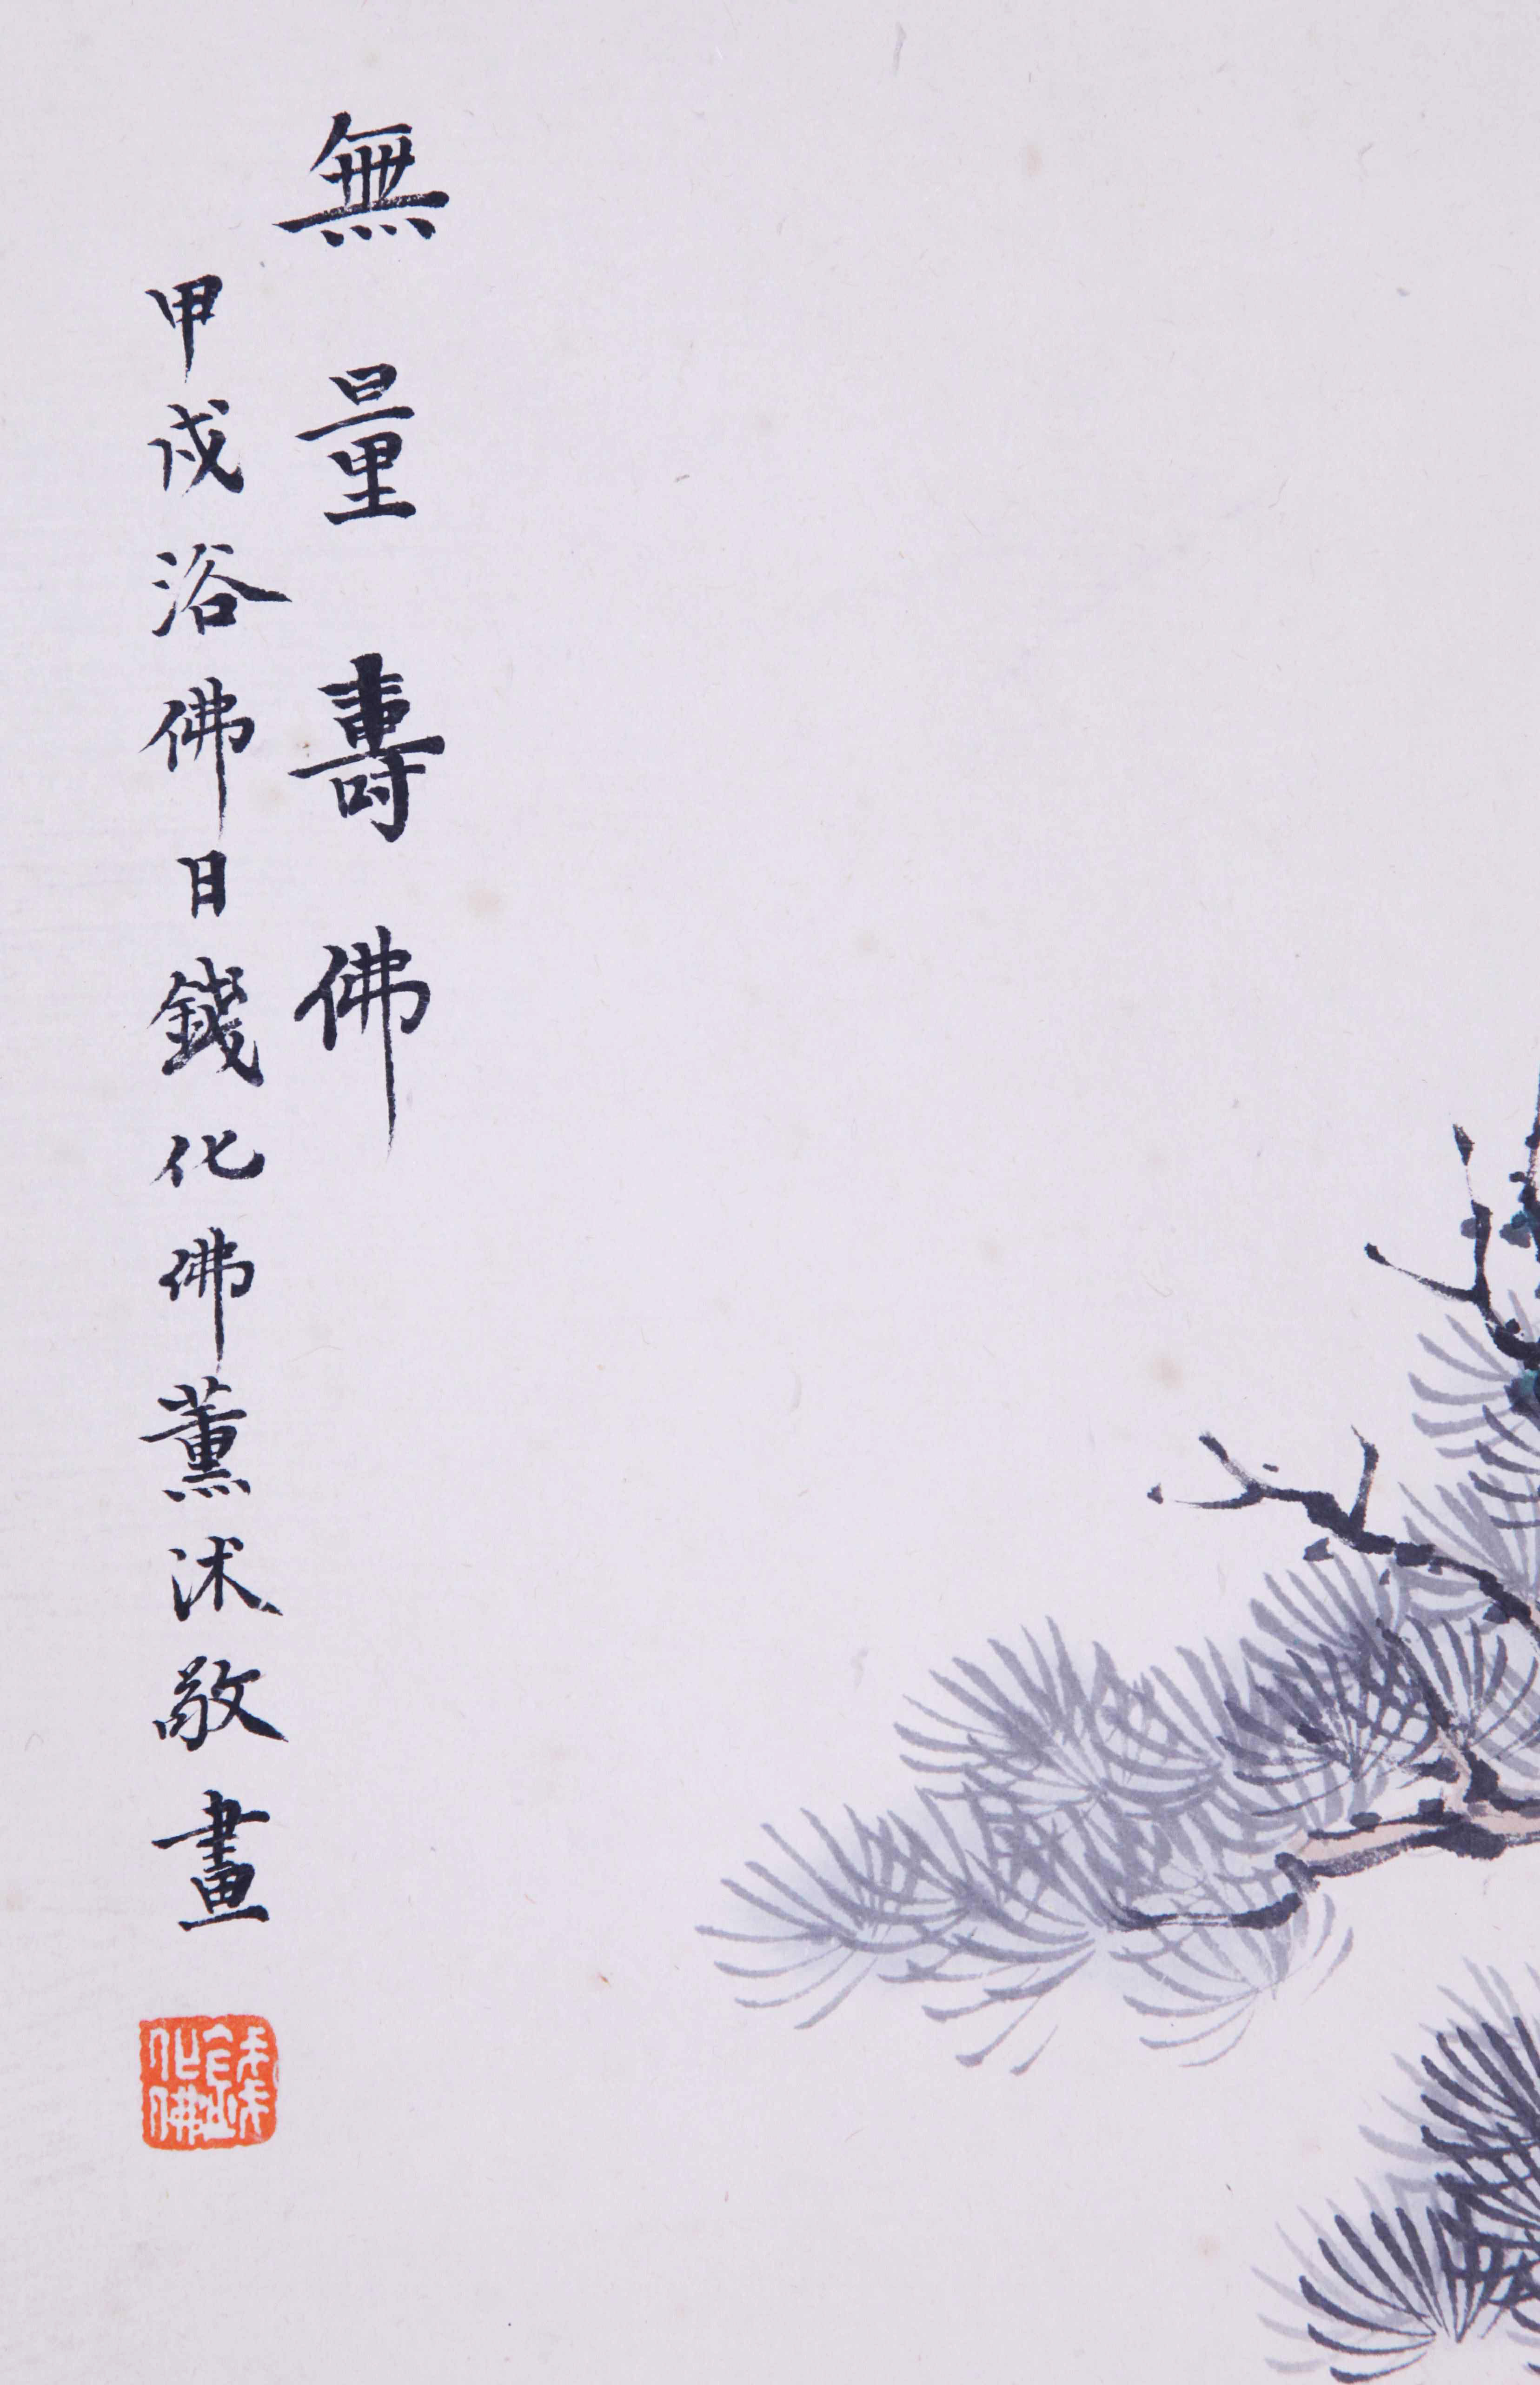 無量壽佛
甲戌浴佛日錢化佛薰沐敬畫
錢化佛